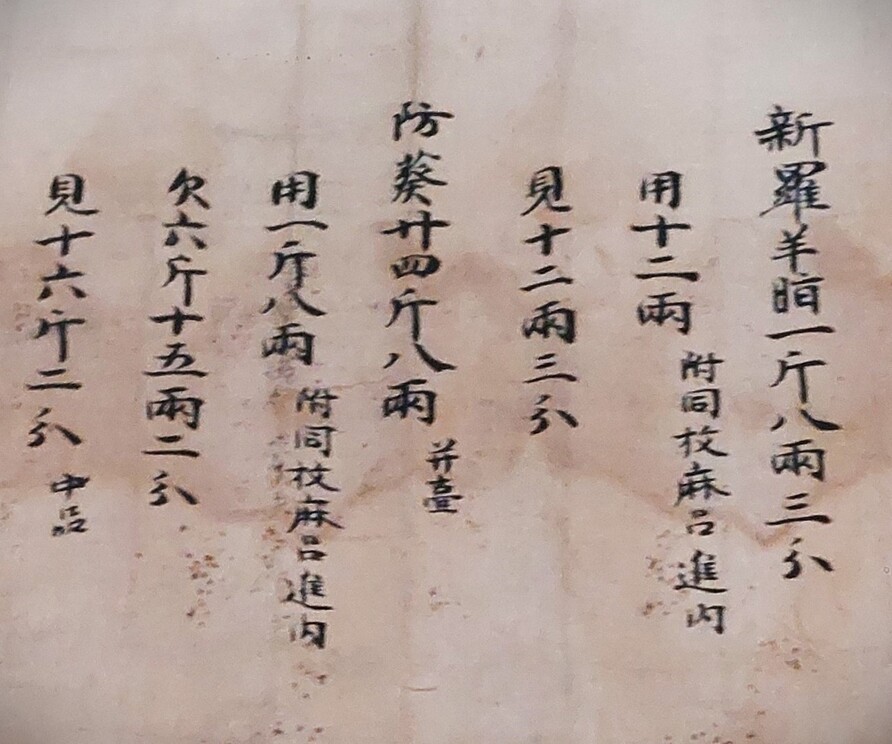 新羅羊脂一斤八兩三分
用十二兩 附同枝麻呂進内
見十二兩三分
防葵廿四斤八兩 并臺
用一斤八兩 附同枝麻呂進内
欠六斤十五兩二分
見十六斤二分 中品